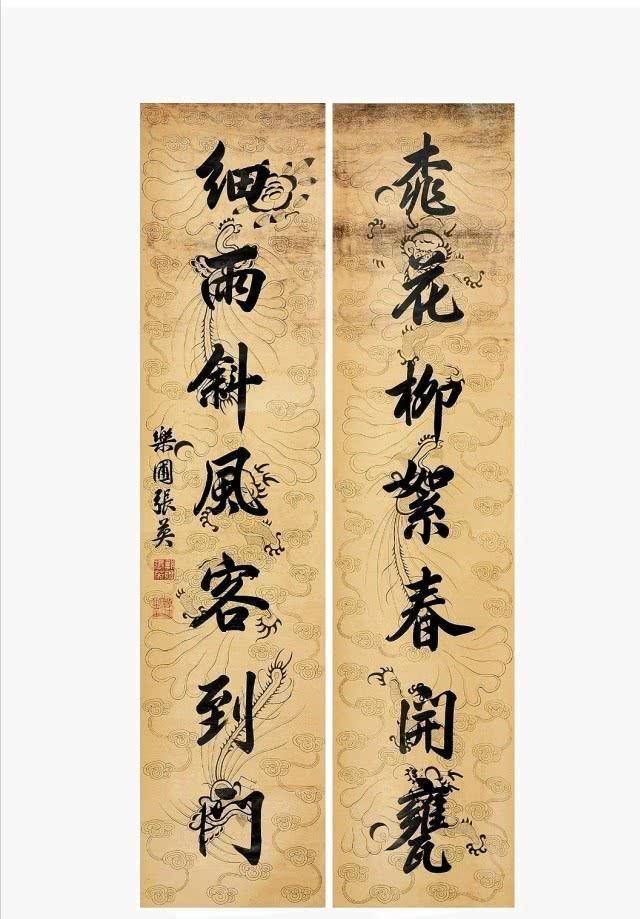 桃花柳絮春開甕
細雨斜風客到門
樂圃張英